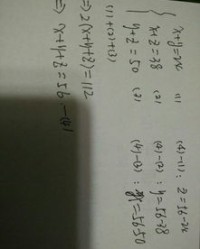 x+y=24 (1)
x+z=38 (2)
y+z=50 (3)
(1)+(2)+(3)
⇒ 2(x+y+z)=112
⇒ x+y+z=56 —(4)
(4)-(1): z=56-24
(4)-(2): y=56-38
(4)-(3): x=56-50